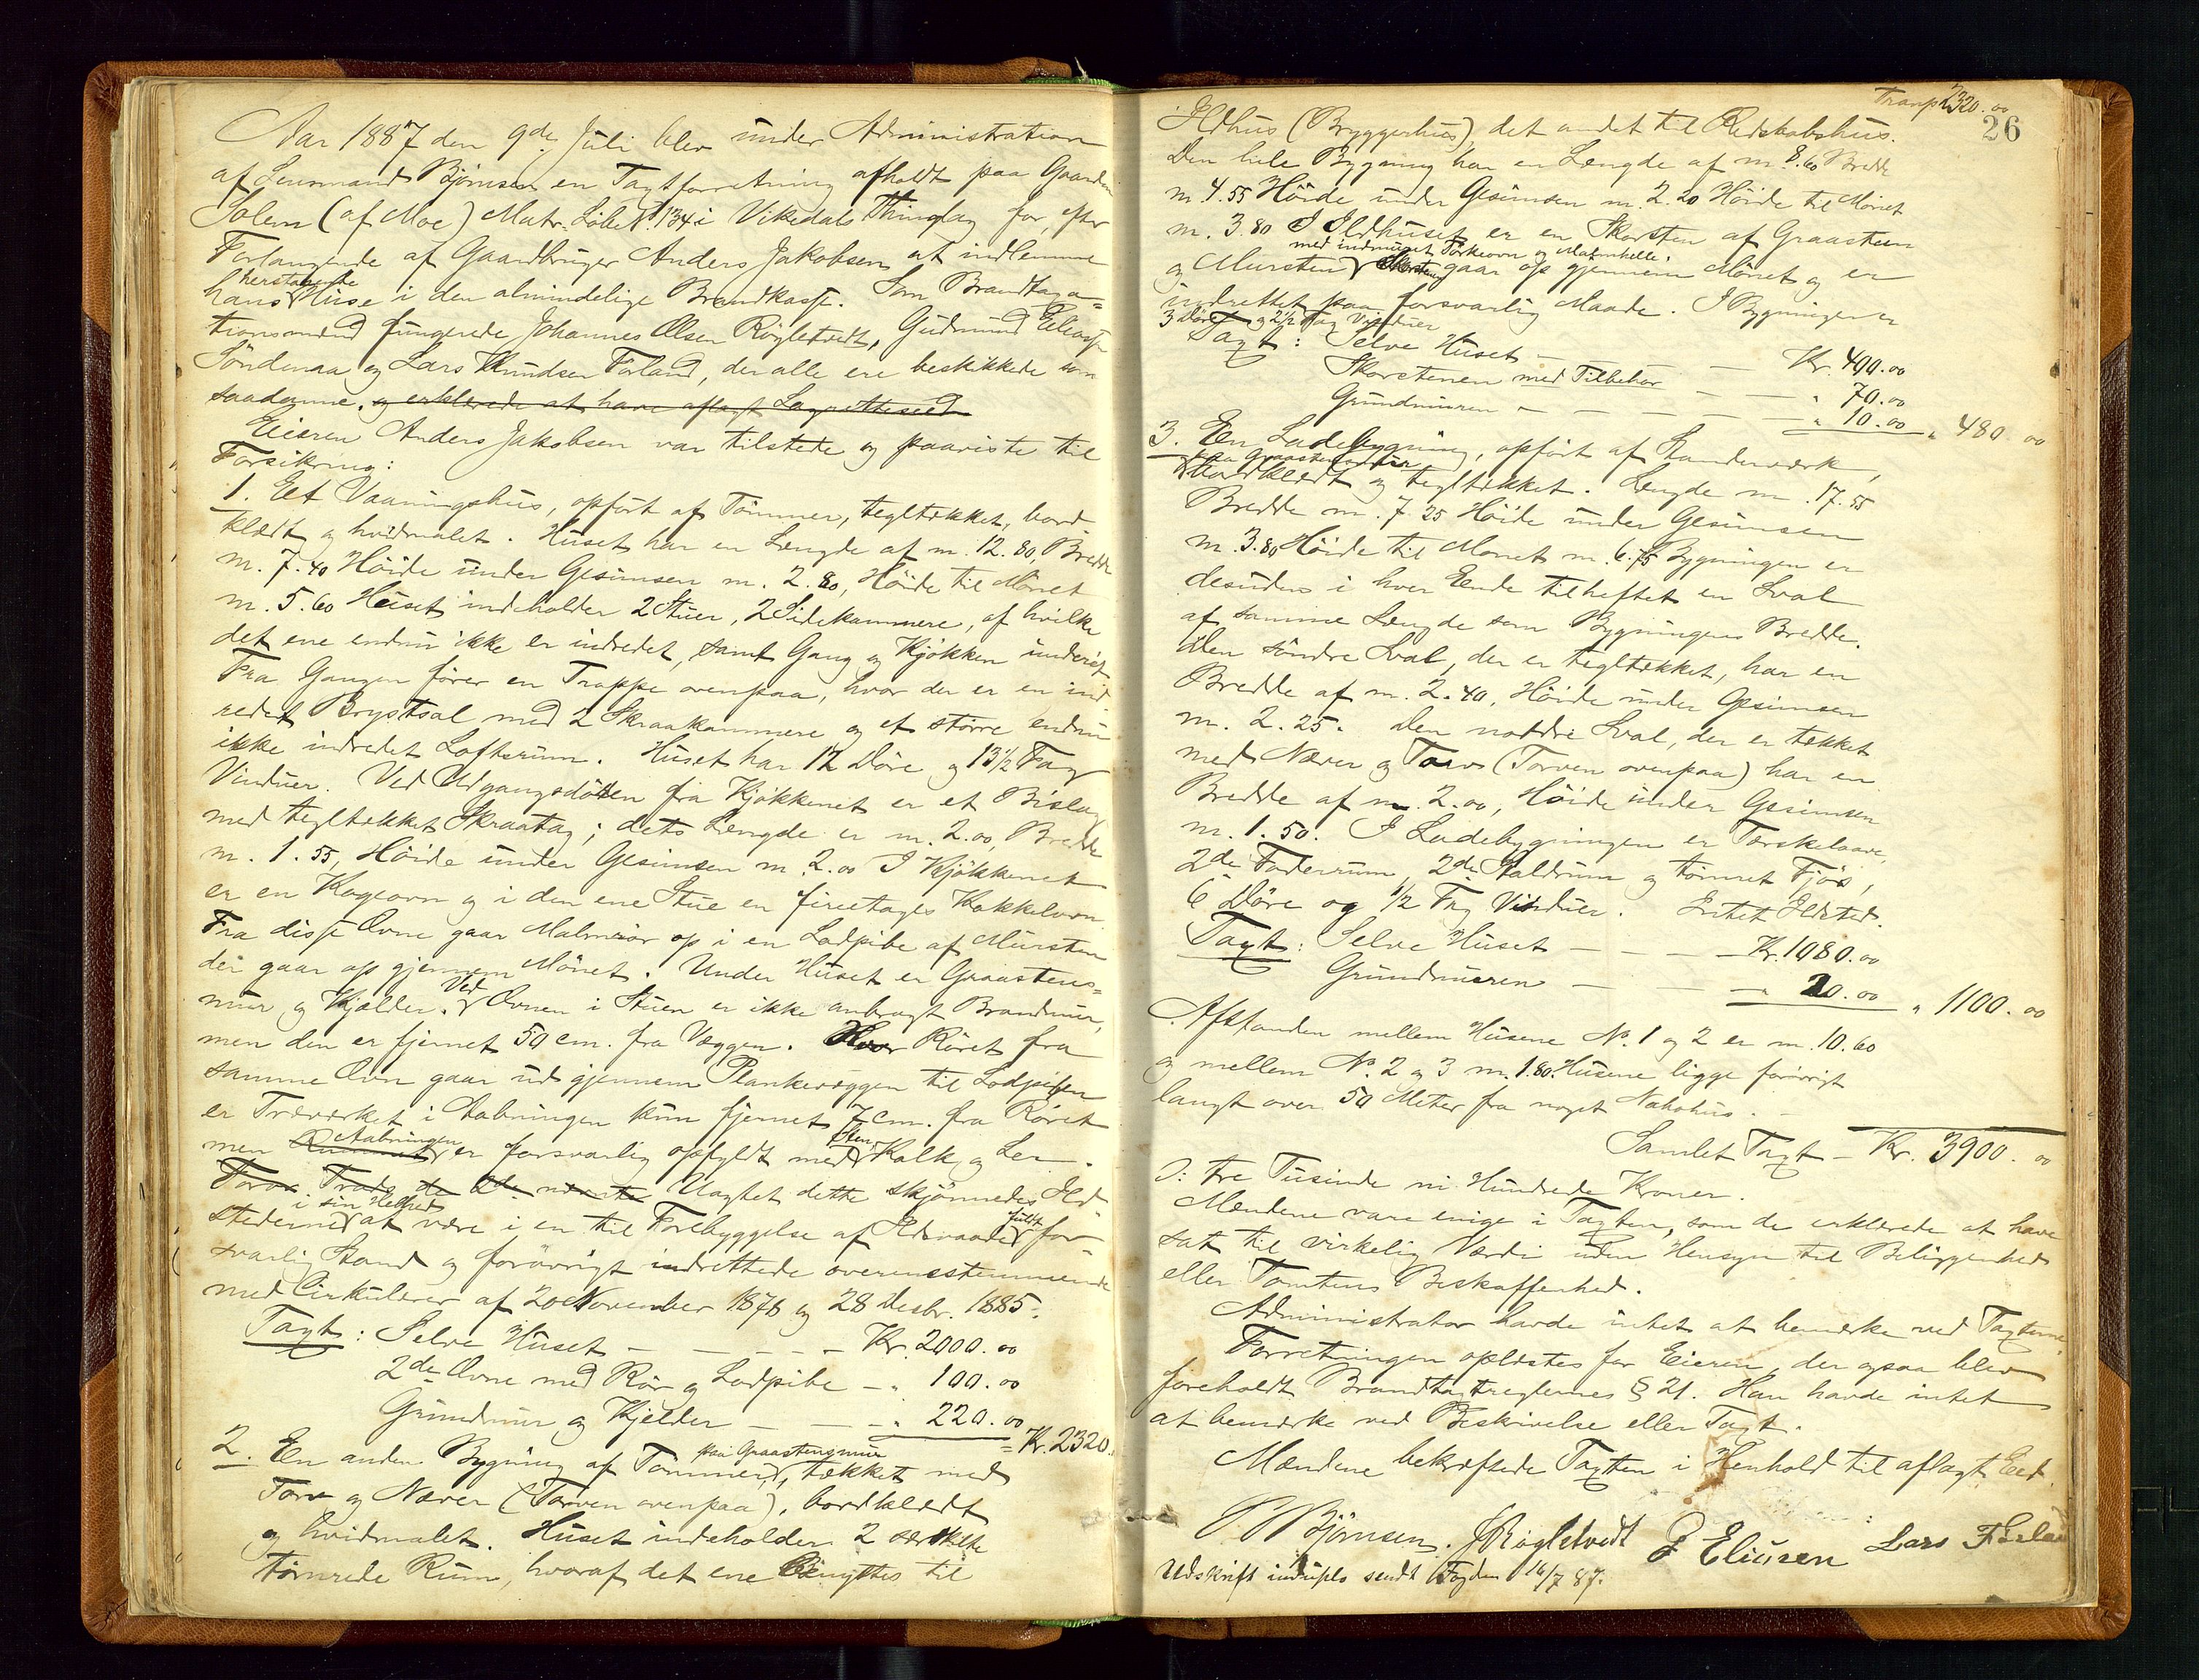 Aar 1887 den 9de Juli blev under Administration
af Lensmand Björnsen en Taxtforretning afholdt paa Gaarden
Solem (af Moe) Matr. Löbe N. 134 i Vikedals Thinglag for, efter
Forlangende af Gaardbruger Anders Jakobsen at indlemme
herstaaende
hans Huse i den almindelige Brandkasse. Som Brandtaxa-
tionsmænd fungerede Johannes Olsen Rögletvedt, Gudmund Eliassen
Söndenaa og Lars Knudsen Förland, der alle ere beskikkede som
saadanne. og erklærede at have aflagt Lagrettesed
Eieren Anders Jakobsen var tilstede og paaviste til
Forsikring:
1. Eet Vaaningshus, opfört af Tömmer, tegltækket, bord
klædt og hvidmalet. Huset har en Længde af m. 12.80, Bredde
m. 7.40 Höide under Gesimsen m. 2.80, Höide til Mönet
m. 5.60 Huset indeholder 2 Stuer, 2 Sidekammere, af hvilke
det ene endnu ikke er indredet, samt Gang og Kjökken underet
Fra Gangen förer en Trappe ovenpaa, hvor der er en ind
redet Brystsal med 2 Skraakammere og et större endnu
ikke indredet Loftsrum. Huset har 12 Döre og 13 1/2 Fag
Vinduer. Ved Udgangsdören fra Kjökkenet er et Bislag
med tegltækket Skraatag; dets Længde er m. 2.00, Bredde
m. 1.55, Höide under Gesimsen m. 2.00 I Kjökkenet
er en Kogeovn og i den ene Stue en fireetages Kakkelovn
Fra disse Ovne gaar Malmrör op i en Lodpibe af Mursten
der gaar op gjennem Mönet. Under Huset er Graastens-
mur og Kjelder. Ved Ovnen i Stuen er ikke anbragt Brandmur,
men den er fjernet 50 cm. fra Væggen. Hvor Röret fra
samme Ovn gaar ud gjennem Plankevæggen til Lodpiben
er Træværket i Aabningen kun fjernet 7 cm. fra Röret
Aabningen Sten
men Rummet er forsvarlig opfyldt med Kalk og Ler.
Uagtet dette skjönnedes Ild-
i sin Helhed fuldt
stederne at være i en til Forebyggelse af Ildsvaade for-
svarlig Stand og forövrigt indrettede overensstemmende
med Cirkulærer af 20 November 1876 og 28 Desbr. 1885.
Taxt: Selve Huset - - - - - Kr. 2000.00
2de Ovne med Rör og Lodpibe - " 100.00
Grundmur og Kjelder - - - " 220.00 = Kr. 2320.
2. En anden Bygning af Tömmer, paa Graastensmur tækket med
Torv og Næver (Torven ovenpaa), bordklædt
og hvidmalet. Huset indeholder 2 særskilte
tömrede Rum, hvoraf det ene benyttes til
Transp. 2320.00
26
Ildhus (Bryggerhus), det andet til Redskabshus.
Den hele Bygning har en Længde af m. 8.60 Bredde
m. 4.55 Höide under Gesimsen m. 2.20 Höide til Mönet
m. 3.80 I Ildhuset er en Skorsten af Graasteen
med indmuret Törkeovn og Malmhelle.
og Mursten Skorstenen gaar op gjennem Mönet og er
indrettet paa forsvarlig Maade. I Bygningen er
3 Döre og 2 1/2 Fag Vinduer
Taxt: Selve Huset - - - Kr. 400.00
Skorstenen med Tilbehör - - " 70.00
Grundmuren - - - - - " 10.00 " 480.00
3. En Ladebygning, opfört af Standerværk,
paa Graastensmur
bordklædt og tegltækket. Længde m. 17.55
Bredde m. 7.25 Höide under Gesimsen
m. 3.80 Höide til Mönet m. 6.75 Bygningen er
desuden i hver Ende tilheftet en Sval
af samme Længde som Bygningens Bredde.
Den söndre Sval, der er tegltækket, har en
Bredde af m. 2.40, Höide under Gesimsen
m. 2.25. Den nordre Sval, der er tækket
med Næver og Torv (Torven ovenpaa) har en
Bredde af m. 2.00, Höide under Gesimsen
m. 1.50. I Ladebygningen er Tærskelaave,
2de Foderrum, 2de Staldrum og tömret Fjös,
6 Döre og 1/2 Fag Vinduer. Intet Ildsted.
Taxt: Selve Huset - - - Kr. 1080.00
Grundmuren - - - " 20.00 " 1100.00
Afstanden mellem Husene No. 1 og 2 er m. 10.60
og mellem No. 2 og 3 m. 1.80. Husene ligge forövrigt
langt over 50 Meter fra noget Nabohus. -
Samlet Taxt - Kr. 3900.00
ɔ: tre Tusinde ni Hundrede Kroner.
Mændene vare enige i Taxten, som de erklærede at have
sat til virkelig Værdi uden Hensyn til Beliggenhed
eller Tomtens Beskaffenhed.
Administrator havde intet at bemærke ved Taxterne
Forretningen oplæstes for Eieren, der ogsaa blev
foreholdt Brandtaxtreglernes § 21. Han havde intet
at bemærke ved Beskrivelse eller Taxt.
Mændene bekræftede Taxten i Henhold til aflagt Eed.
P Björnsen. J Rögletvedt G Eliasen Lars Förland
Udskrift in duplo sendt Fogden 16/7 87.